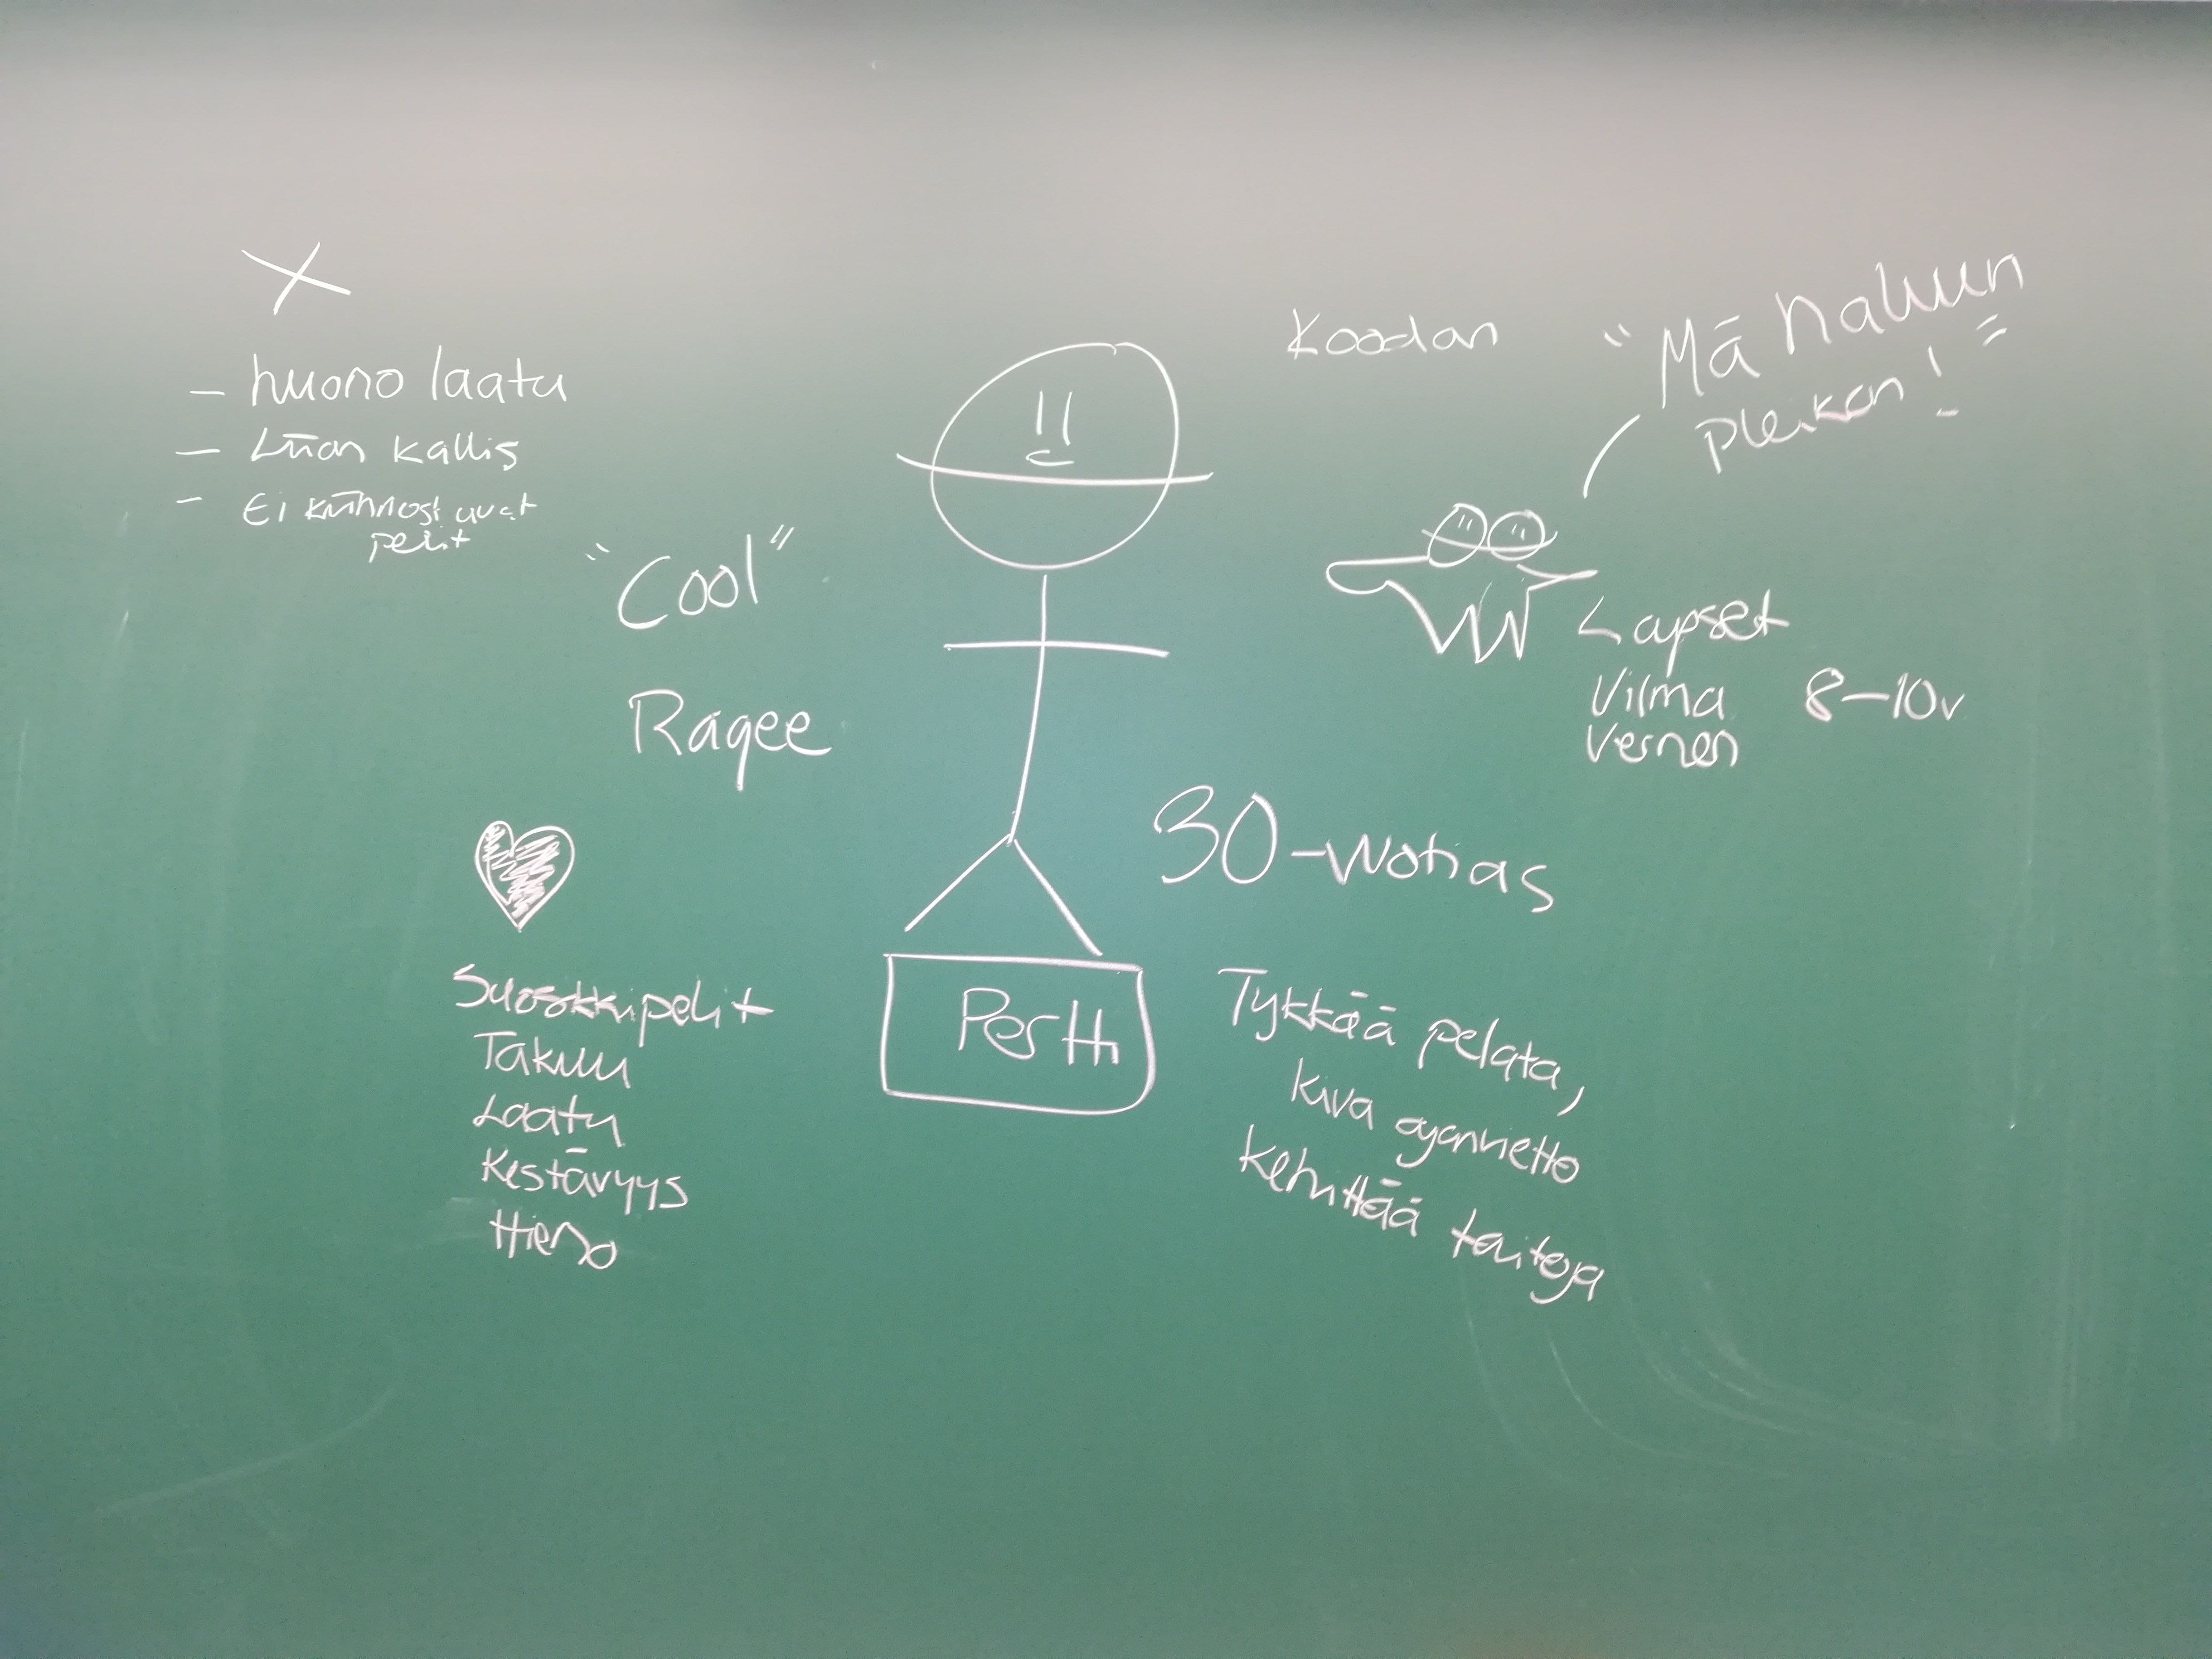 - huono laatu
- Liian kallis
- Ei kiinnostavat
pelit
"Cool"
Ragee
Suosikkipelit
Takuu
Laatu
Kestävyys
Hieno
Pertti
"Mä haluun
pleikan!"
Lapset
Vilma 8-10v
Verneri
30-vuotias
Tykkää pelata,
kiva ajanvietto
kehittää taitoja